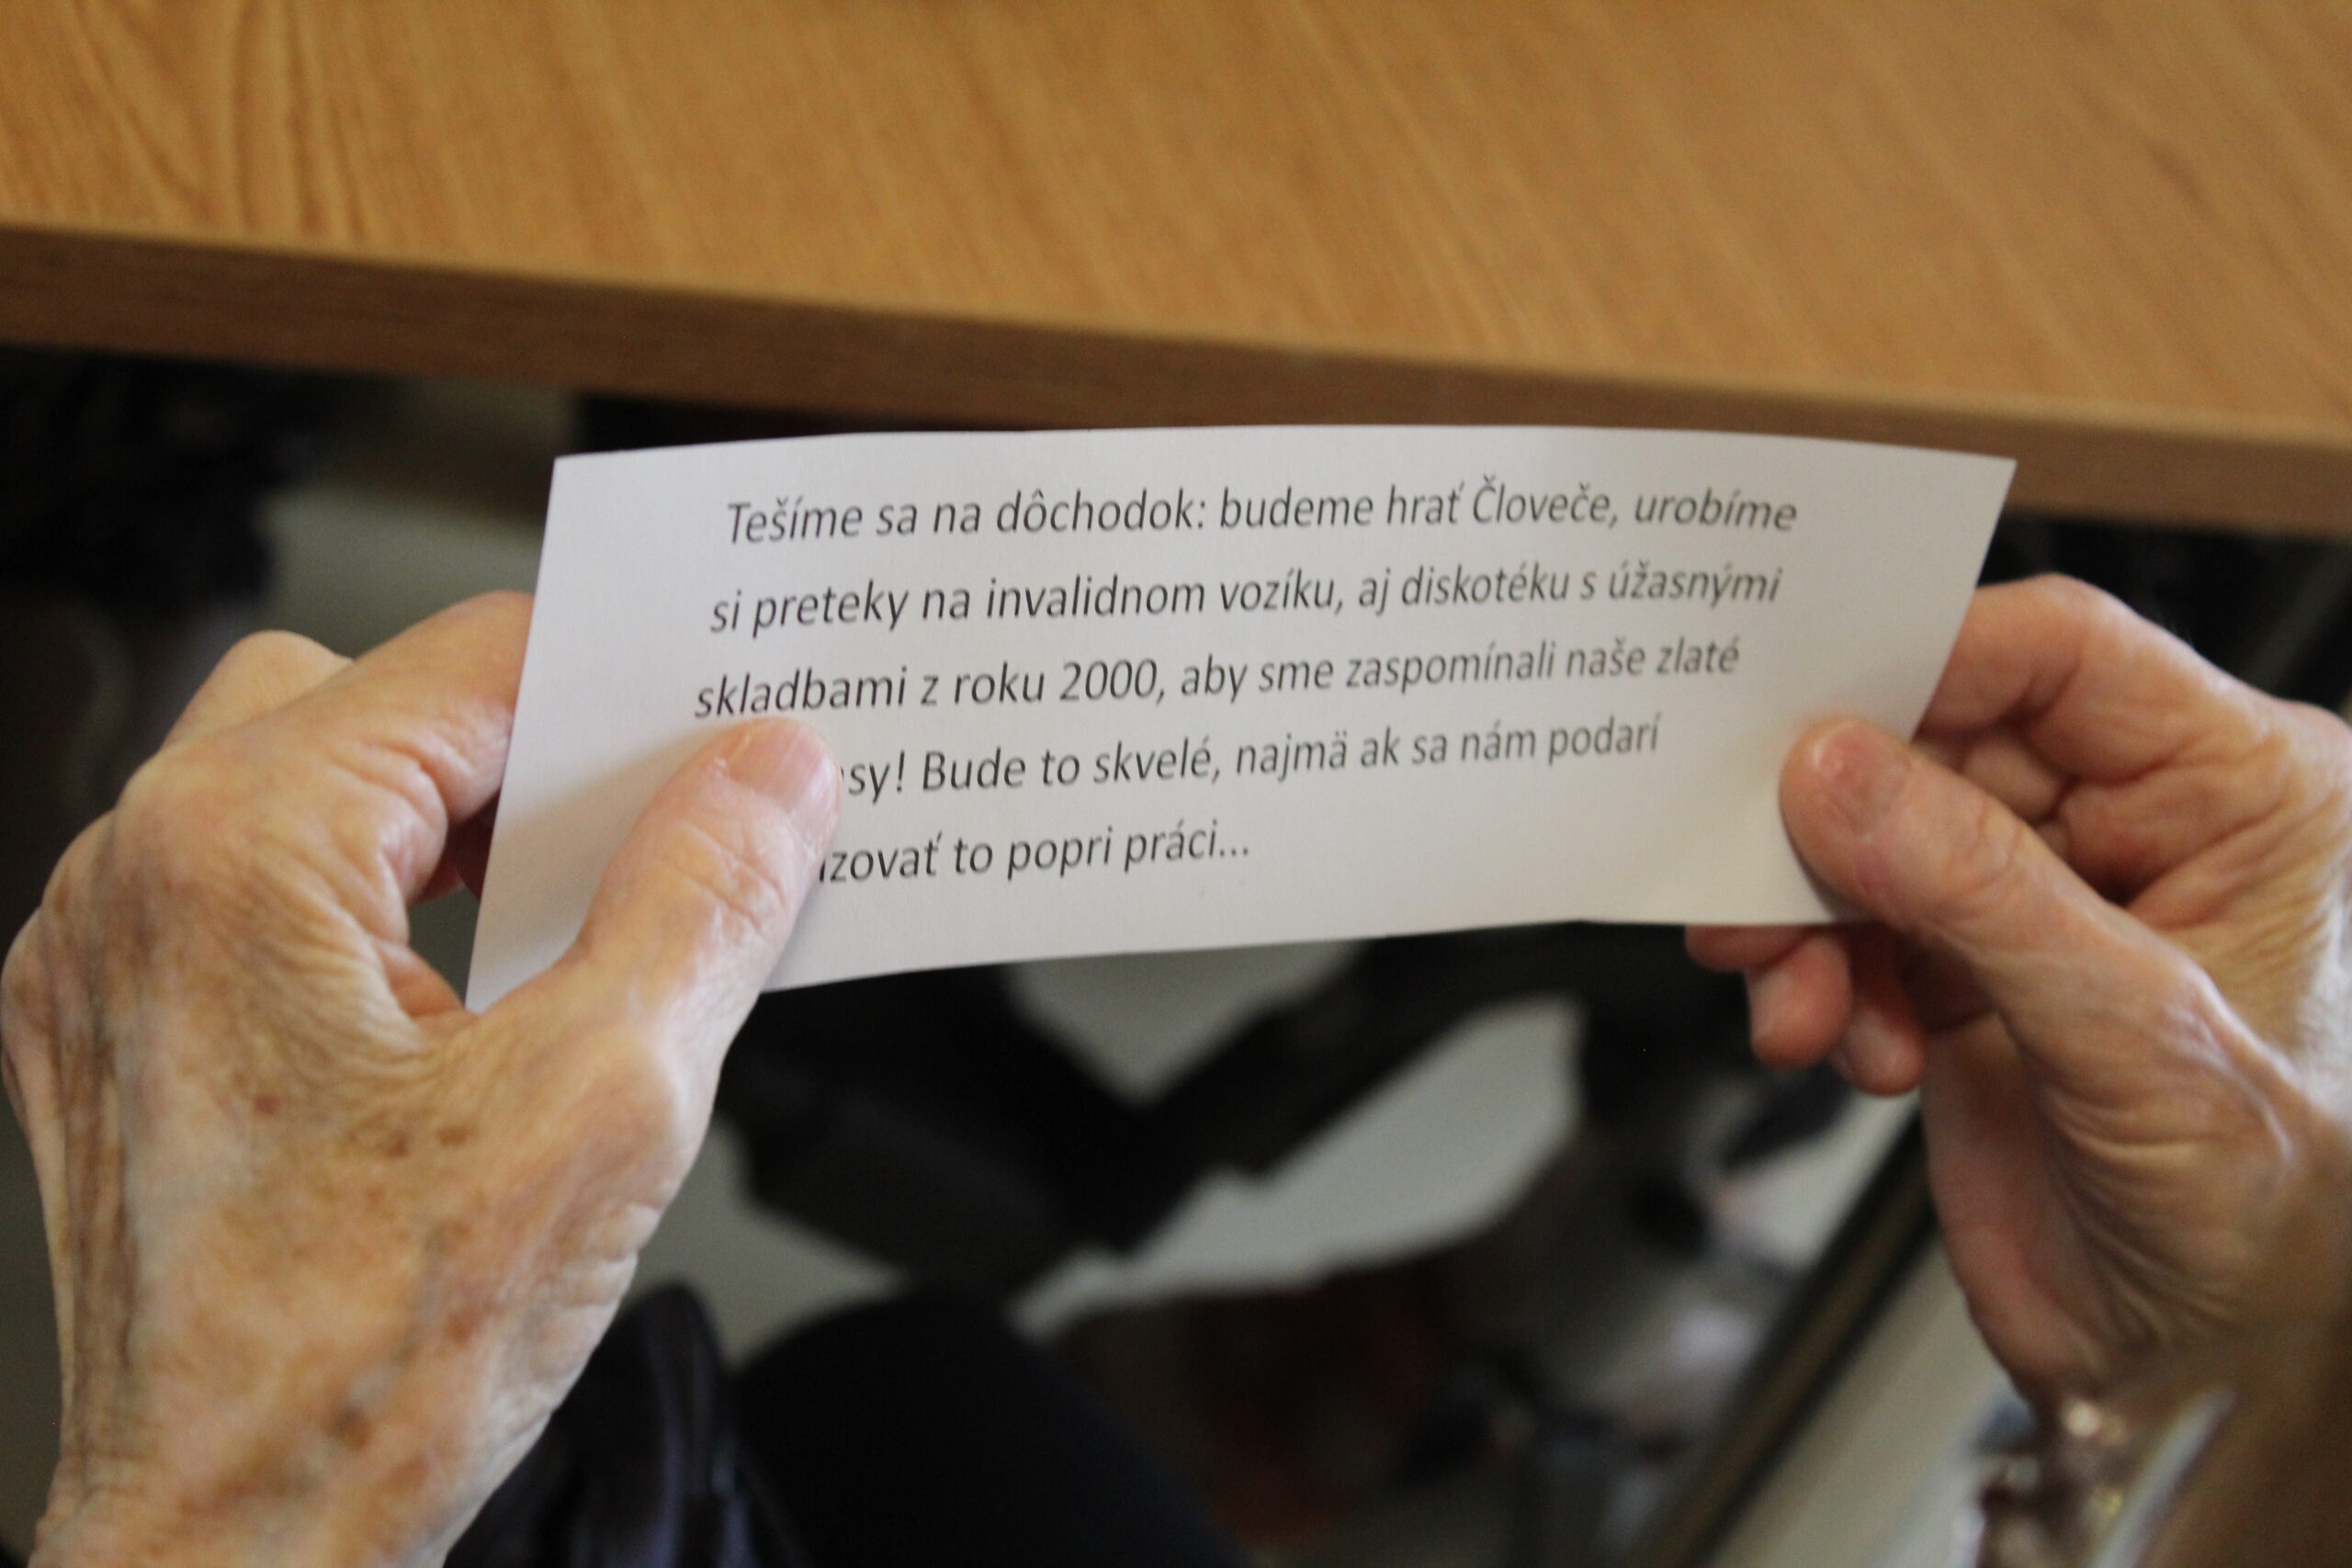 Tešíme sa na dôchodok: budeme hrať Človeče, urobíme
si preteky na invalidnom vozíku, aj diskotéku s úžasnými
skladbami z roku 2000, aby sme zaspomínali naše zlaté
! Bude to skvelé, najmä ak sa nám podarí
to popri práci...